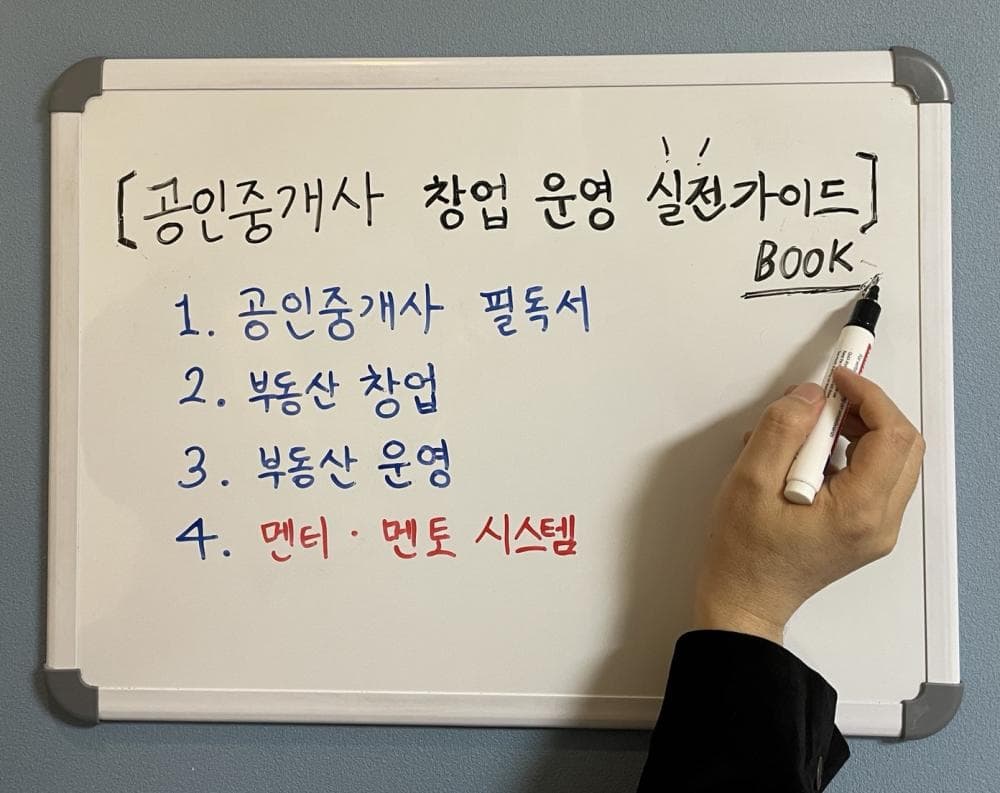 [공인중개사 창업 운영 실전가이드]
BOOK
1. 공인중개사 필독서
2. 부동산 창업
3. 부동산 운영
4. 멘티 · 멘토 시스템